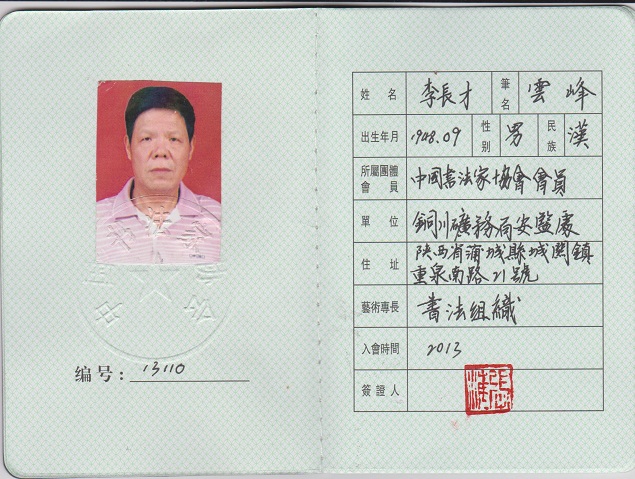 编号：13110
姓名 李長才 筆名 雲峰
出生年月 1948.09 性别 男 民族 漢
所屬團體會員 中國書法家協會會員
單位 銅川礦務局安監處
住址 陝西省蒲城縣城關鎮
重泉南路21號
藝術專長 書法組織
入會時間 2013
簽證人